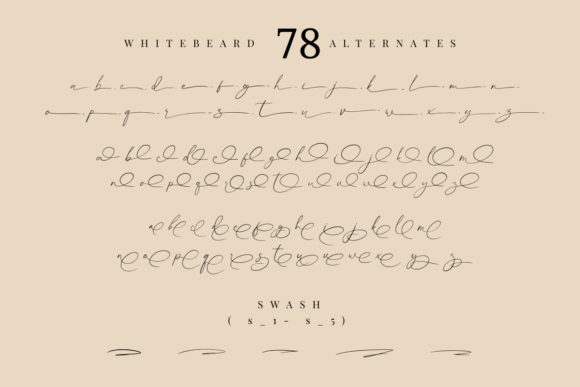 WHITEBEARD 78 ALTERNATES
a b c d e f g h i j k l m n
o p q r s t u v w x y z
a b c d e f g h i j k l m
n o p q r s t u v w x y z
a b c d e f g h i j k l m
n o p q r s t u v w x y z
SWASH
( s_1- s_5 )